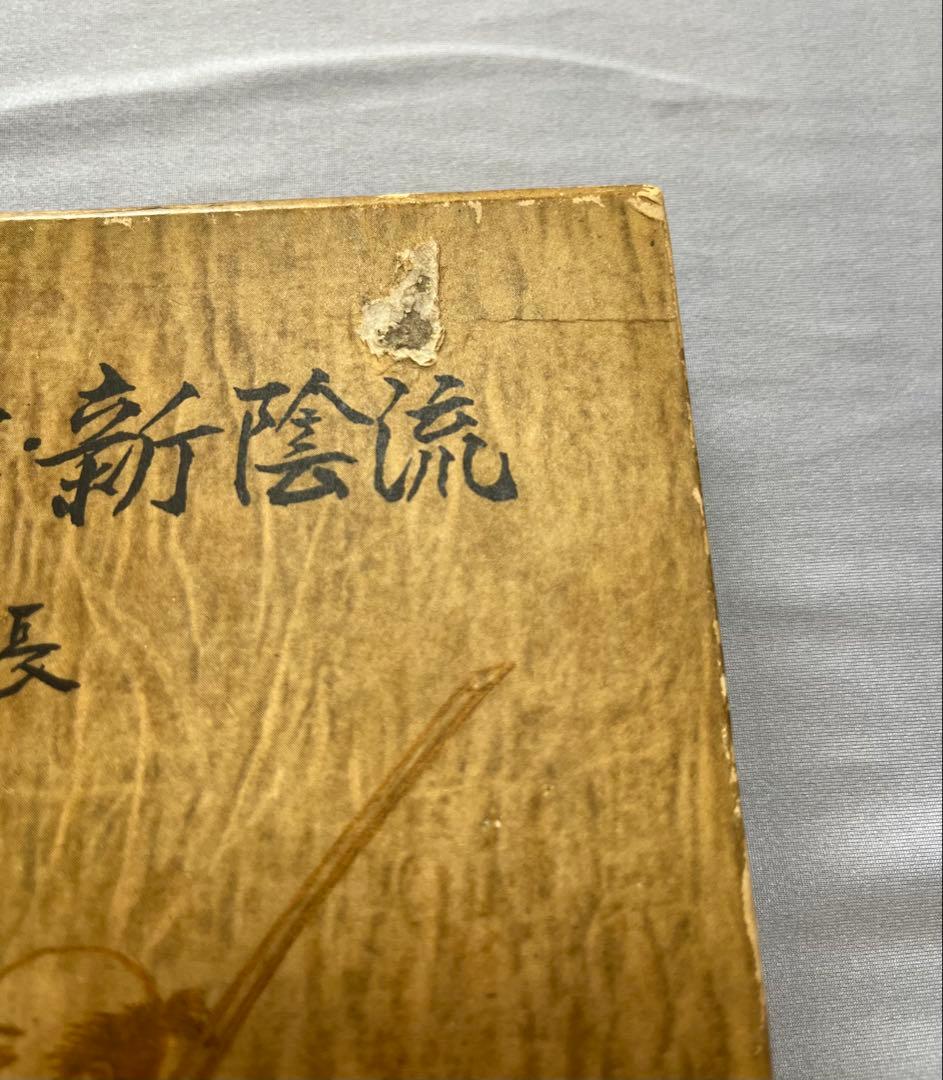 ・新陰流
長